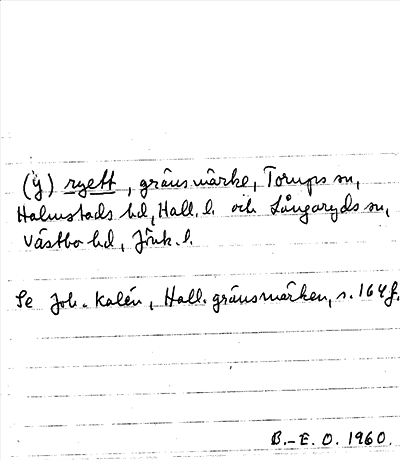 (y) ryett, gränsmärke, Torups sn,
Halmstads hd, Hall. l. och Långaryds sn,
Västbo hd, Jönk. l.
Se Joh. Kalén, Hall. gränsmärken, s. 164 f.
B.-E. O. 1960.